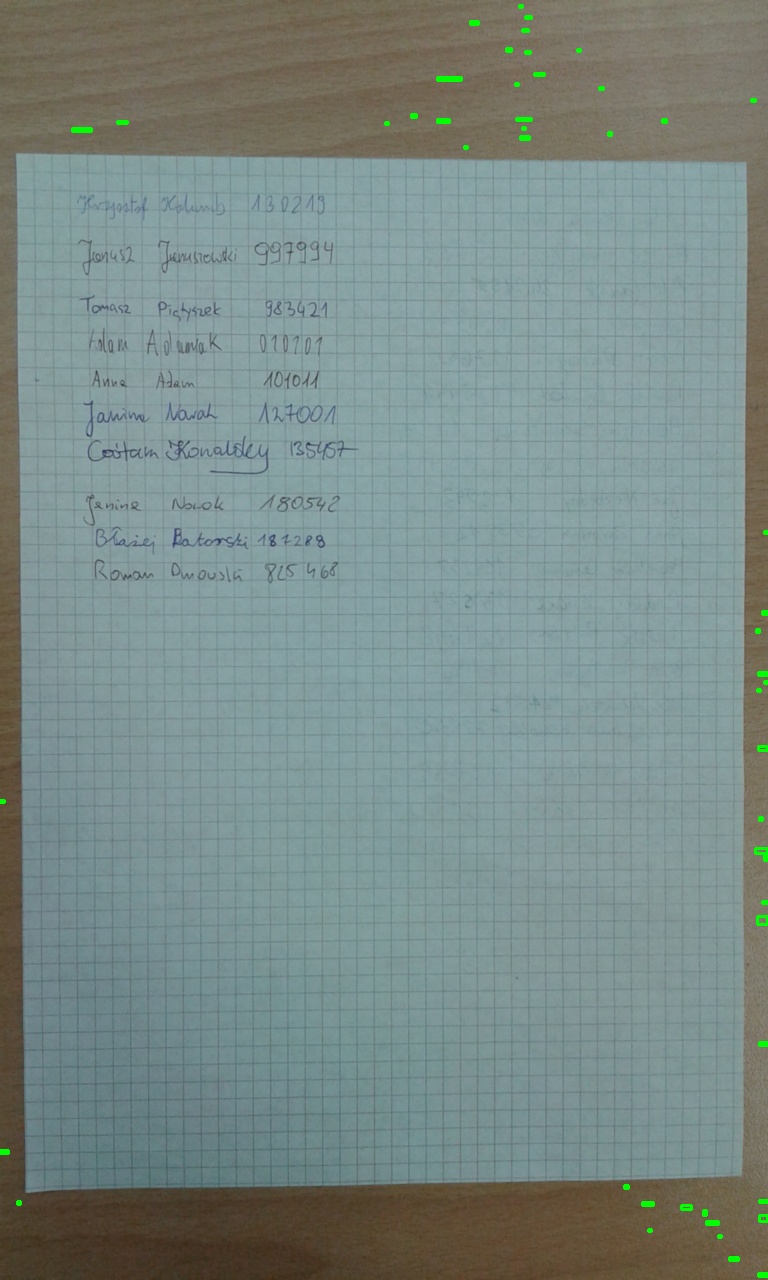 Krzysztof Kolumb 130219
Janusz Januszowski 997994
Tomasz Piętyszek 983421
Adam Adamiak 010101
Anna Adam 101011
Janina Nowak 127001
Konalsky 135457
Janina Nowok 180542
Błażej Batorski 187289
Roman Dmowski 825 468